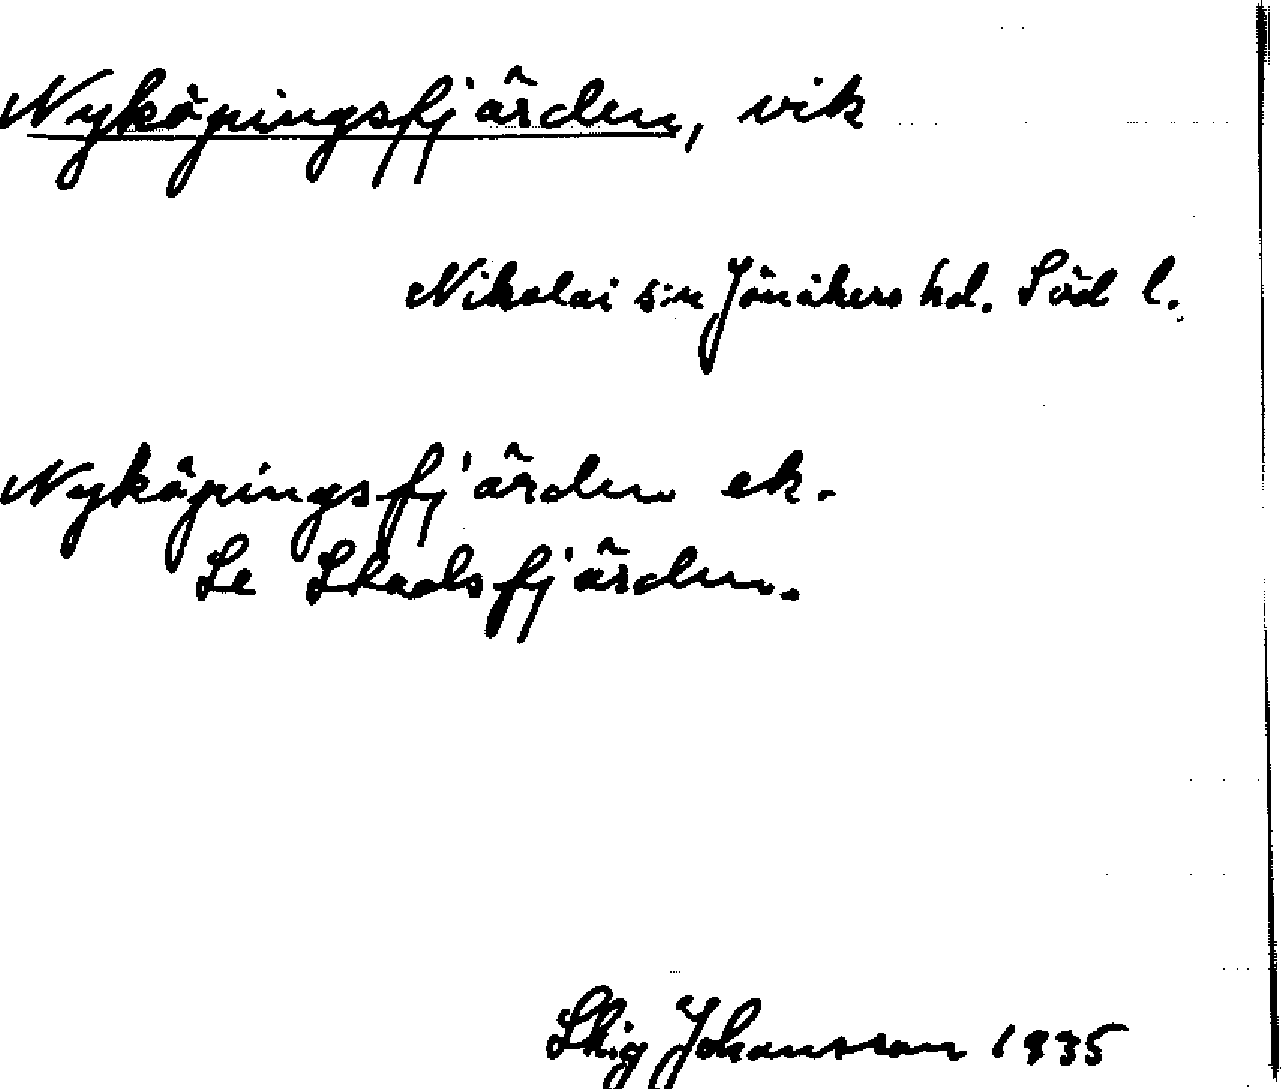 Nyköpingsfjärden, vik
Nikolai s:n Jönåkers hd. Söd l.
Nyköpingsfjärden ek.
Se Stadsfjärden.
Stig Johansson 1935